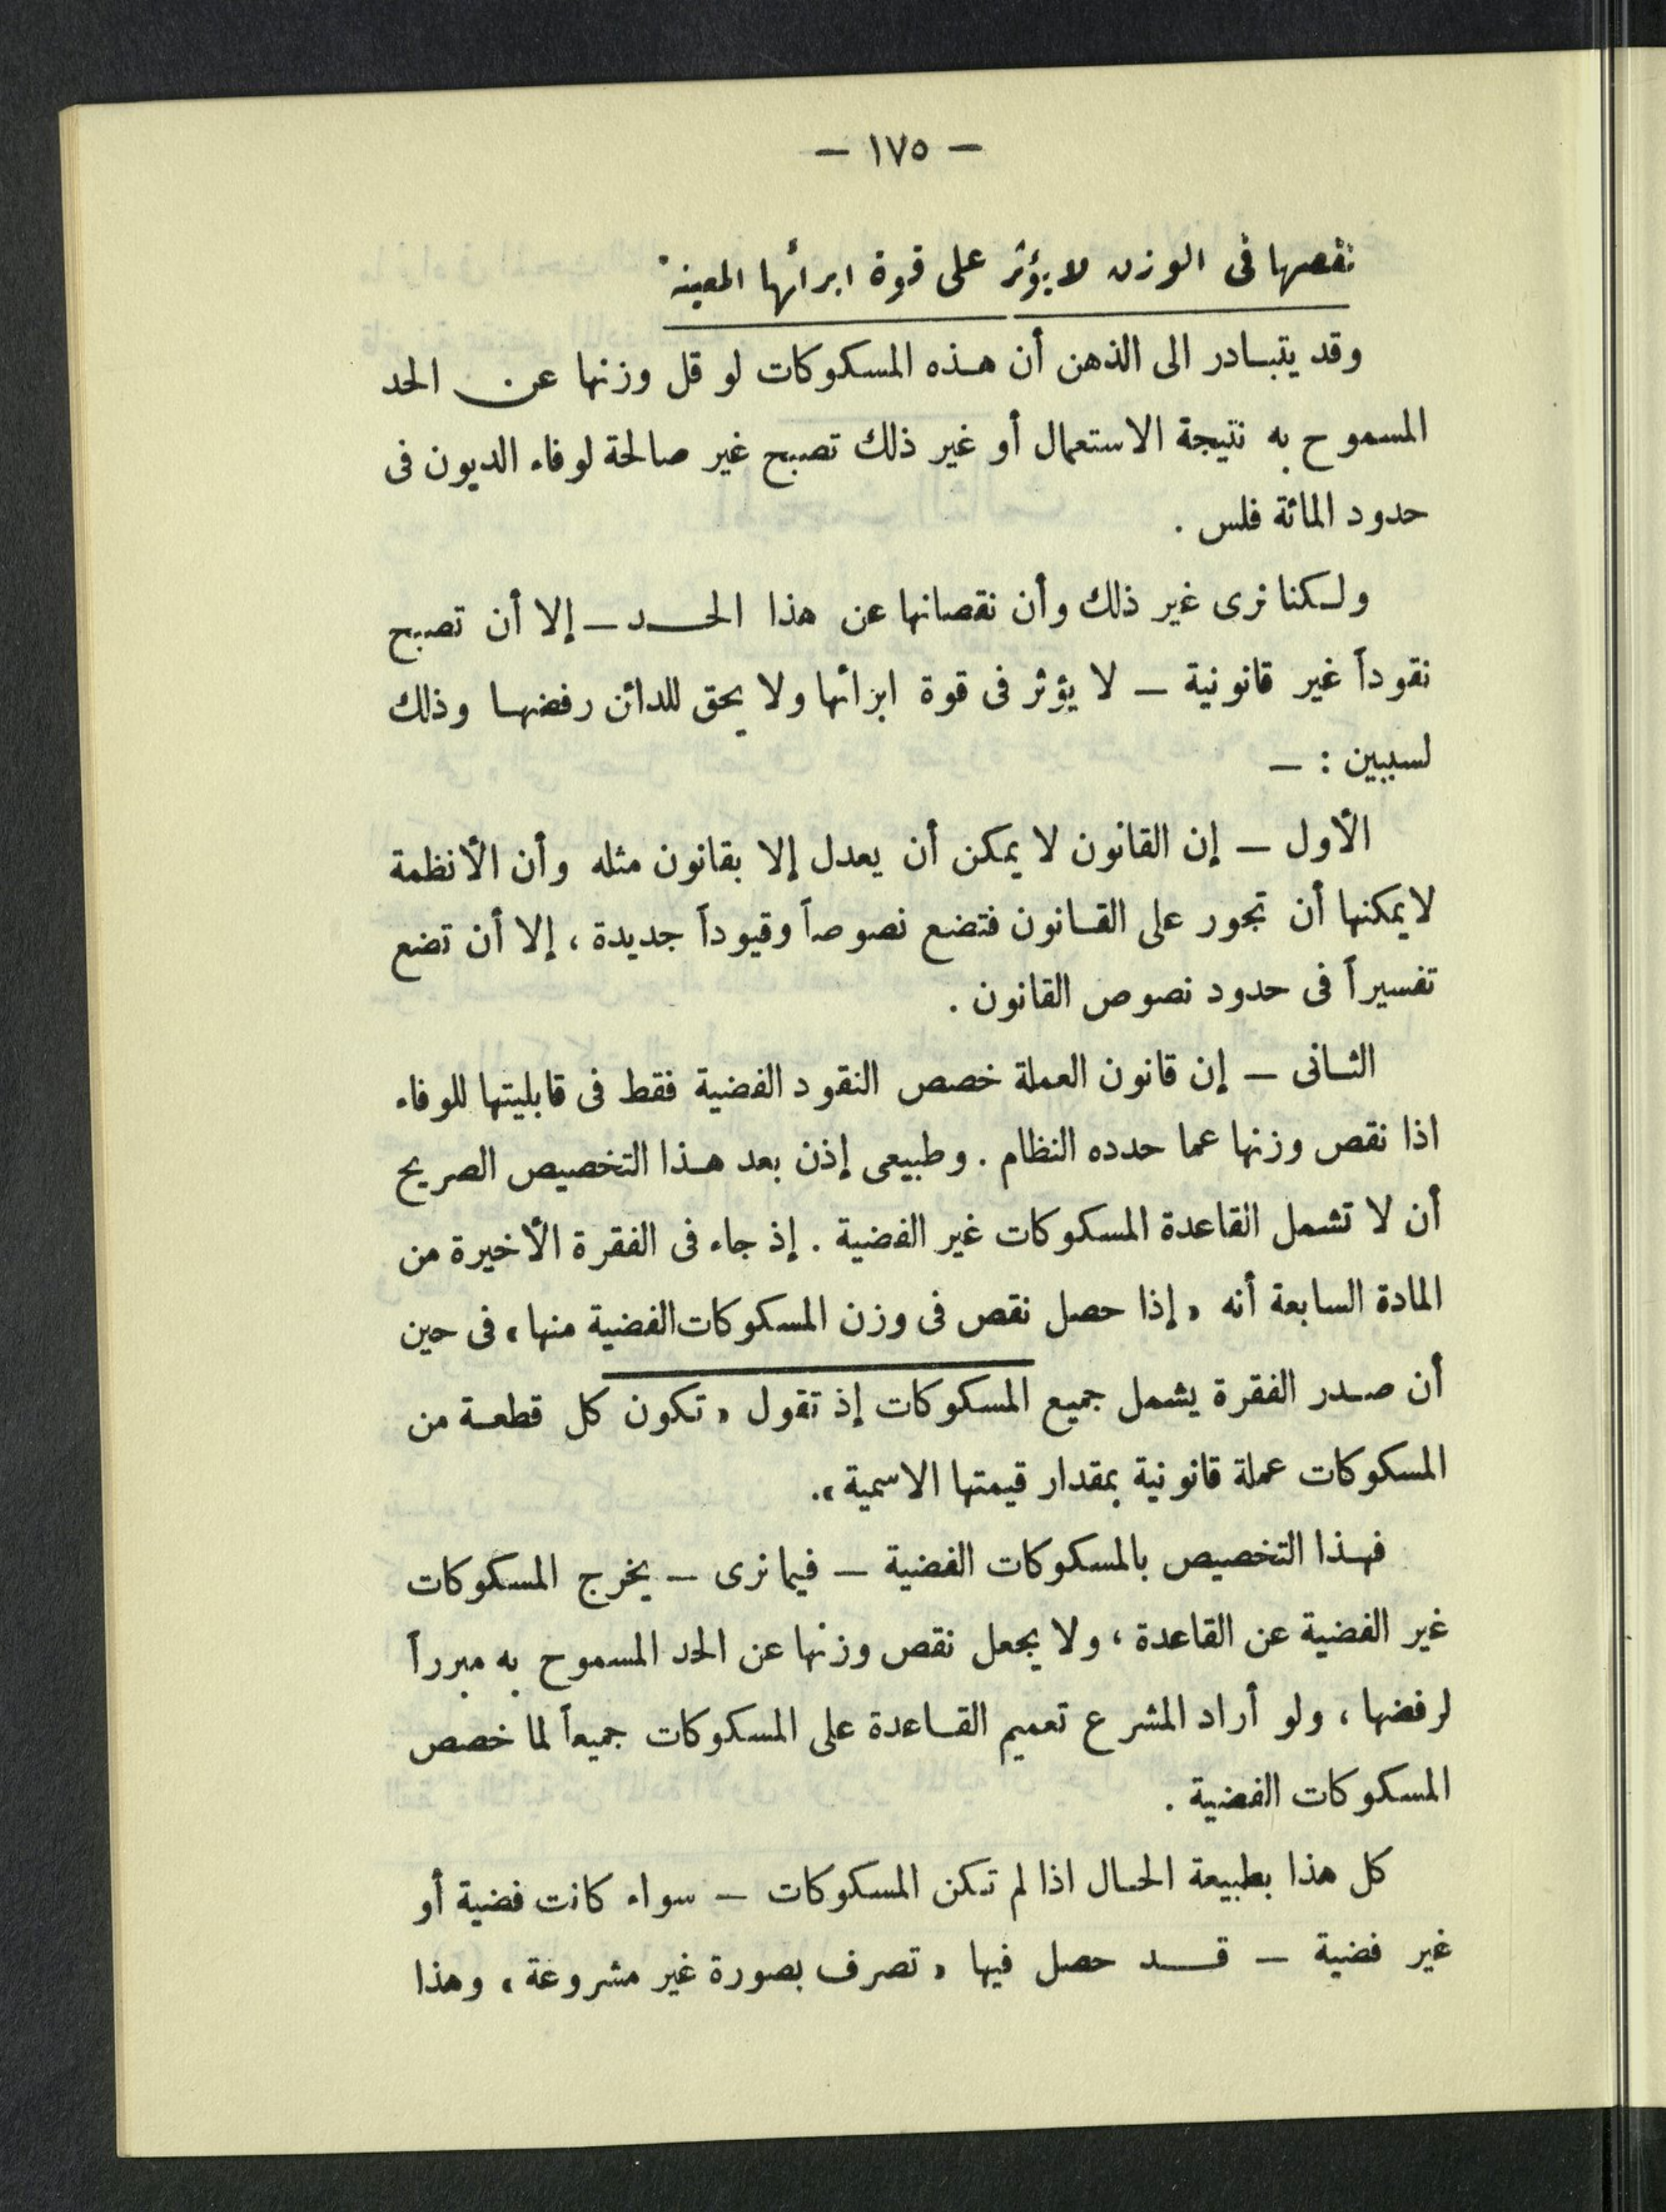 — ١٧٥ —
نقصها فى الوزن لا يؤثر على قوة ابرائها المعينة
وقد يتبادر الى الذهن أن هذه المسكوكات لو قل وزنها عن الحد
المسموح به نتيجة الاستعمال أو غير ذلك تصبح غير صالحة لوفاء الديون فى
حدود المائة فلس .
ولكنا نرى غير ذلك وأن نقصانها عن هذا الحد — إلا أن تصبح
نقوداً غير قانونية — لا يؤثر فى قوة ابرائها ولا يحق للدائن رفضها وذلك
لسببين : —
الأول — إن القانون لا يمكن أن يعدل إلا بقانون مثله وأن الأنظمة
لايمكنها أن تجور على القانون فتضع نصوصاً وقيوداً جديدة ، إلا أن تضع
تفسيراً فى حدود نصوص القانون .
الثانى — إن قانون العملة خصص النقود الفضية فقط فى قابليتها للوفاء
اذا نقص وزنها عما حدده النظام . وطبيعى إذن بعد هذا التخصيص الصريح
أن لا تشمل القاعدة المسكوكات غير الفضية . إذ جاء فى الفقرة الأخيرة من
المادة السابعة أنه « إذا حصل نقص فى وزن المسكوكات الفضية منها » فى حين
أن صدر الفقرة يشمل جميع المسكوكات إذ تقول « تكون كل قطعة من
المسكوكات عملة قانونية بمقدار قيمتها الاسمية ».
فهذا التخصيص بالمسكوكات الفضية — فيما نرى — يخرج المسكوكات
غير الفضية عن القاعدة ، ولا يجعل نقص وزنها عن الحد المسموح به مبرراً
لرفضها ، ولو أراد المشرع تعميم القاعدة على المسكوكات جميعاً لما خصص
المسكوكات الفضية .
كل هذا بطبيعة الحال اذا لم تكن المسكوكات — سواء كانت فضية أو
غير فضية — قد حصل فيها « تصرف بصورة غير مشروعة » وهذا